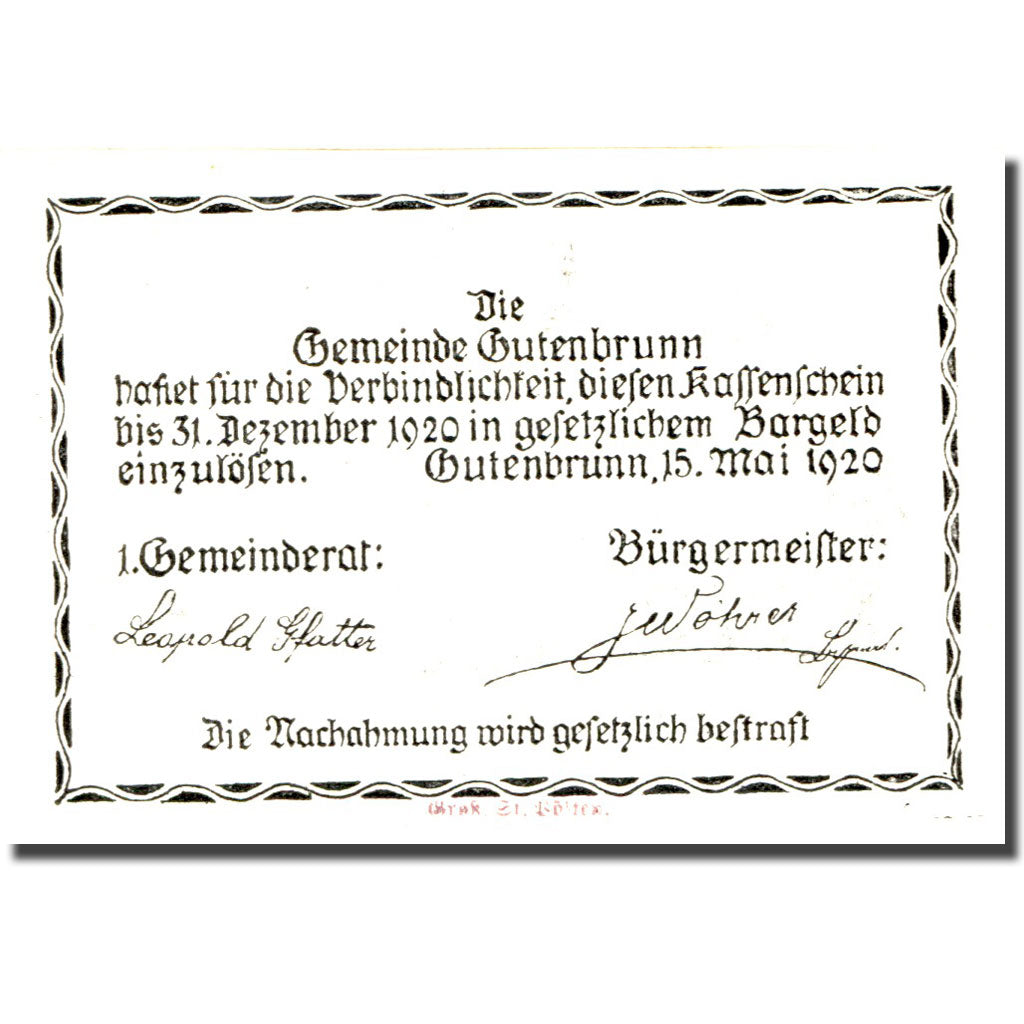 Die
Gemeinde Gutenbrunn
haftet für die Verbindlichkeit, diesen Kassenschein
bis 31. Dezember 1920 in gesetzlichem Bargeld
einzulösen. Gutenbrunn, 15. Mai 1920
1. Gemeinderat: Bürgermeister:
Leopold Gfatter JWöhrer
Die Nachahmung wird gesetzlich bestraft
St. Pölten.